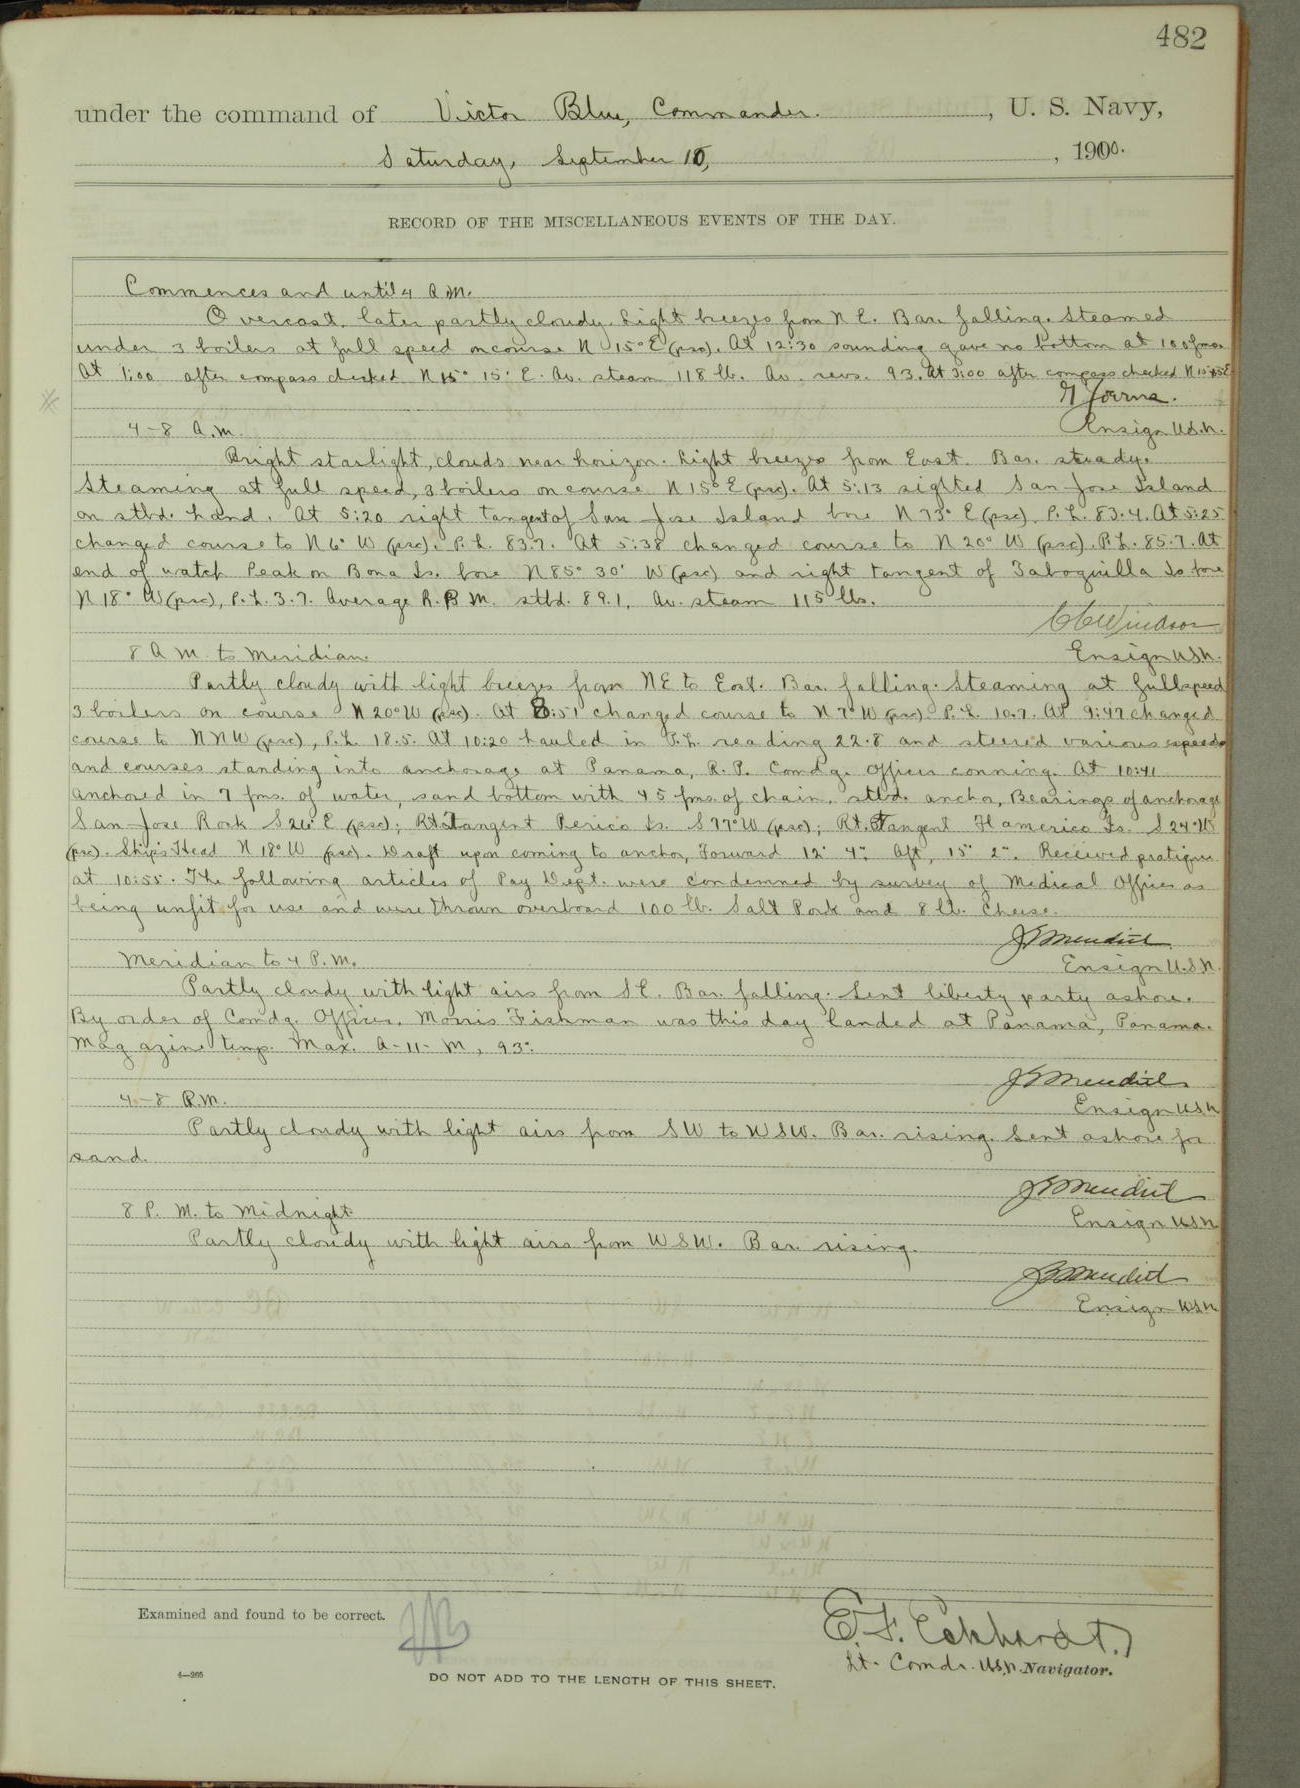 482
under the command of Victor Blue, Commander. , U. S. Navy,
Saturday, September 10, , 1900.
RECORD OF THE MISCELLANEOUS EVENTS OF THE DAY.
Commences and until 4 A.M.
Overcast. later partly cloudy. Light breezes from N E. Bar. falling. Steamed
under 3 boilers at full speed on course N 15° E (psc). At 12:30 sounding gave no bottom at 100 fms.
At 1:00 after compass checked N 15° 15' E. Av. steam 118 lb. Av. revs. 93. At 3:00 after compass checked
Ensign U.S.N.
4-8 A.M.
Bright starlight, clouds near horizon. Light breezes from East. Bar. steady.
Steaming at full speed, 3 boilers on course N 15° E (psc). At 5:13 sighted San Jose Island
on stbd. hand. At 5:20 right tangent of San Jose Island bore N 73° E (psc). P.L. 83.4. At 5:25
changed course to N 6° W (psc). P.L. 83.7. At 5:38 changed course to N 20° W (psc). P.L. 85.7. At
end of watch Peak on Bona Is. bore N 85° 30' W (psc) and right tangent of Taboguilla Is bore
N 18° W (psc), P.L. 3.7. Average R.P.M. stbd. 89.1, Av. steam 115 lbs.
C C Windsor
Ensign U.S.N.
8 A M. to Meridian.
Partly cloudy with light breezes from NE to East. Bar. falling. Steaming at full speed
3 boilers on course N 20° W (psc). At 8:51 changed course to N 7° W (psc) P.L. 10.7. At 9:47 changed
course to N N W (psc), P.L. 18.5. At 10:20 hauled in P.L. reading 22.8 and steered various speeds
and courses standing into anchorage at Panama, R.P. Comdg. Officer conning. At 10:41
anchored in 7 fms. of water, sand bottom with 45 fms. of chain, stbd. anchor, Bearings of anchorage
San Jose Rock S 26° E (psc); Rt. Tangent Perico Is. S 77° W (psc); Rt. Tangent Flamenco Is. S 24° W
(psc). Ship's Head N 18° W (psc). Draft upon coming to anchor, Forward 12' 4", Aft, 15' 2". Received pratique
at 10:55. The following articles of Pay Dept. were condemned by survey of Medical Officer as
being unfit for use and were thrown overboard 100 lb. Salt Pork and 8 lb. Cheese.
Ensign U.S.N.
Meridian to 4 P.M.
Partly cloudy with light airs from S E. Bar. falling. Sent liberty party ashore.
By order of Comdg. Officer, Morris Fishman was this day landed at Panama, Panama.
Magazine temp. Max. A-11-M, 93°.
Ensign U.S.N
4-8 P.M.
Partly cloudy with light airs from SW to WSW. Bar. rising. Sent ashore for
sand.
Ensign U.S.N
8 P. M. to Midnight
Partly cloudy with light airs from W S W. Bar. rising.
Ensign U.S.N
Examined and found to be correct.
E. F. Eckhardt.
Lt. Comdr. U.S.N. Navigator.
4—265
DO NOT ADD TO THE LENGTH OF THIS SHEET.